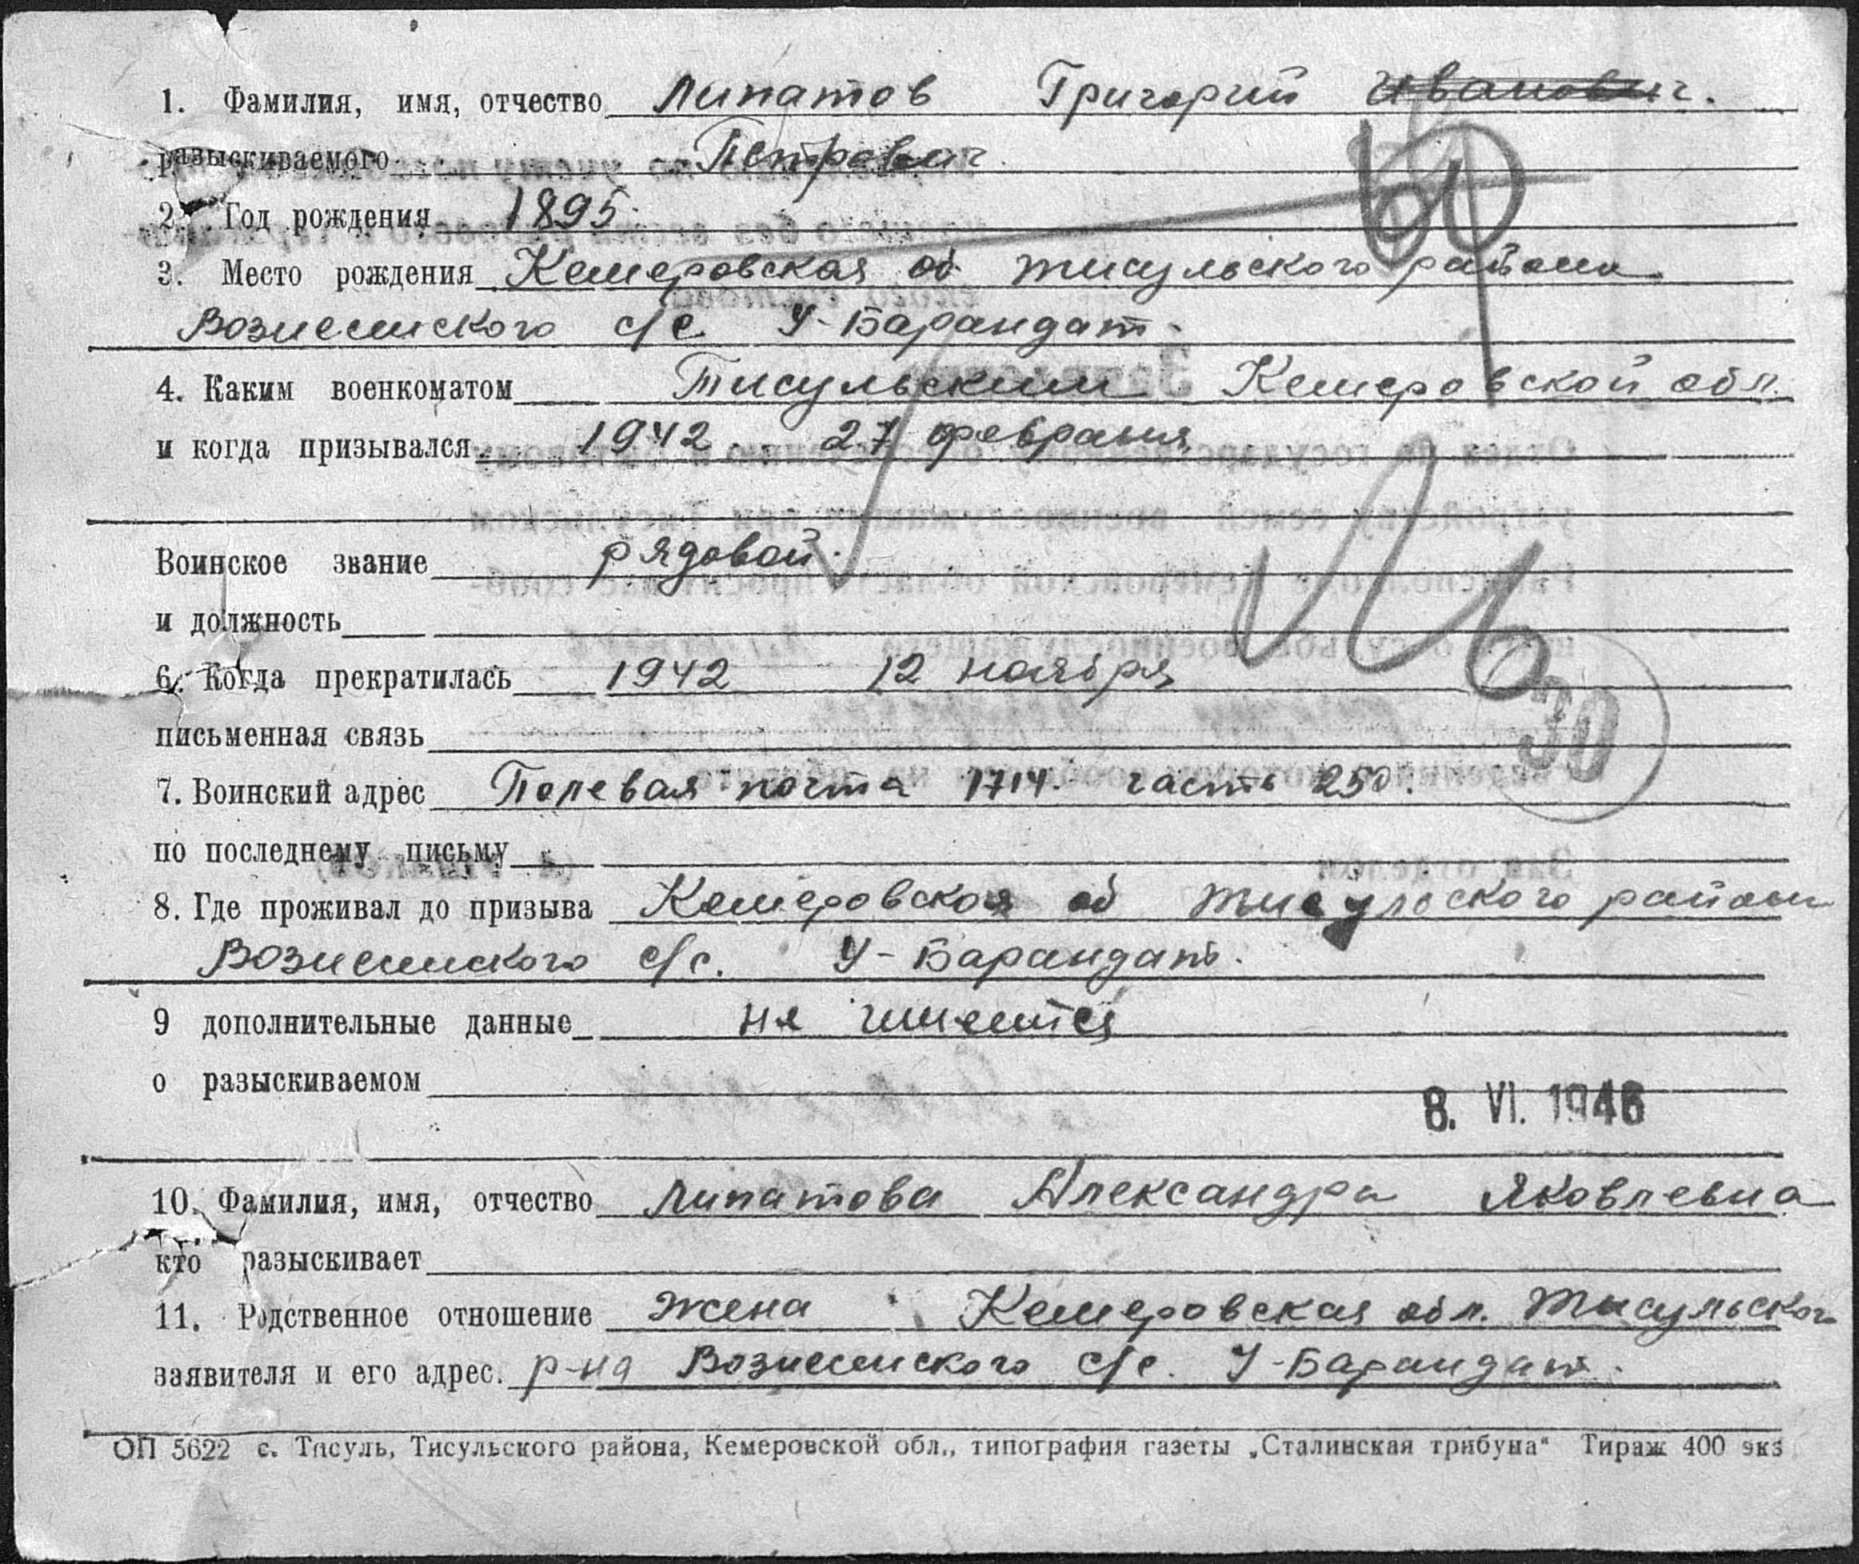 1. Фамилия, имя, отчество Липатов Григорий Иванович.
разыскиваемого Петрович.
2. Год рождения 1895.
3. Место рождения Кемеровская об Тисульского района
Вознесенского с/с У-Барандат.
4. Каким военкоматом Тисульским Кемеровской обл.
и когда призывался 1942 27 февраля
Воинское звание рядовой.
и должность
6. Когда прекратилась 1942 12 ноября
письменная связь
30
7. Воинский адрес Полевая почта 1714. часть 250.
по последнему письму
8. Где проживал до призыва Кемеровская об Тисульского района
Вознесенского с/с. У-Барандат.
9 дополнительные данные не имеется
о разыскиваемом
8. VI. 1946
10. Фамилия, имя, отчество Липатова Александра Яковлевна
кто разыскивает
11. Родственное отношение жена Кемеровская обл. Тисульского
заявителя и его адрес. р-на Вознесенского с/с. У-Барандат.
ОП 5622 с. Тисуль, Тисульского района, Кемеровской обл., типография газеты „Сталинская трибуна" Тираж 400 экз